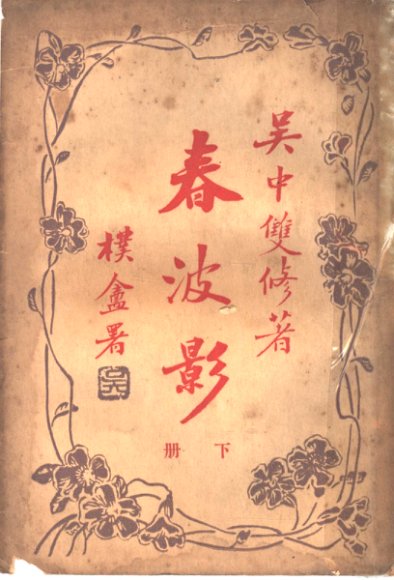 吳中雙修著
春波影
下册
樸盦署